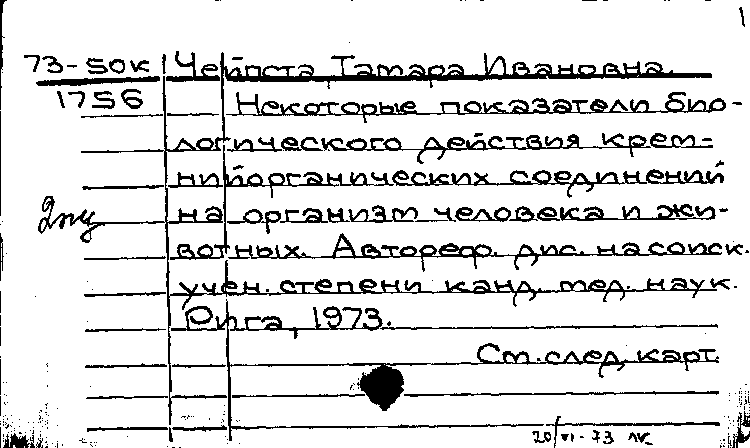 1
73-50к Чейпста Тамара Ивановна.
1756 Некоторые показатели био-
логического действия крем-
нийорганических соединений
на организм человека и жи-
вотных. Автореф. дис. на соиск.
учен. степени канд. мед. наук.
Рига, 1973.
См. след. карт.
20/VI-73